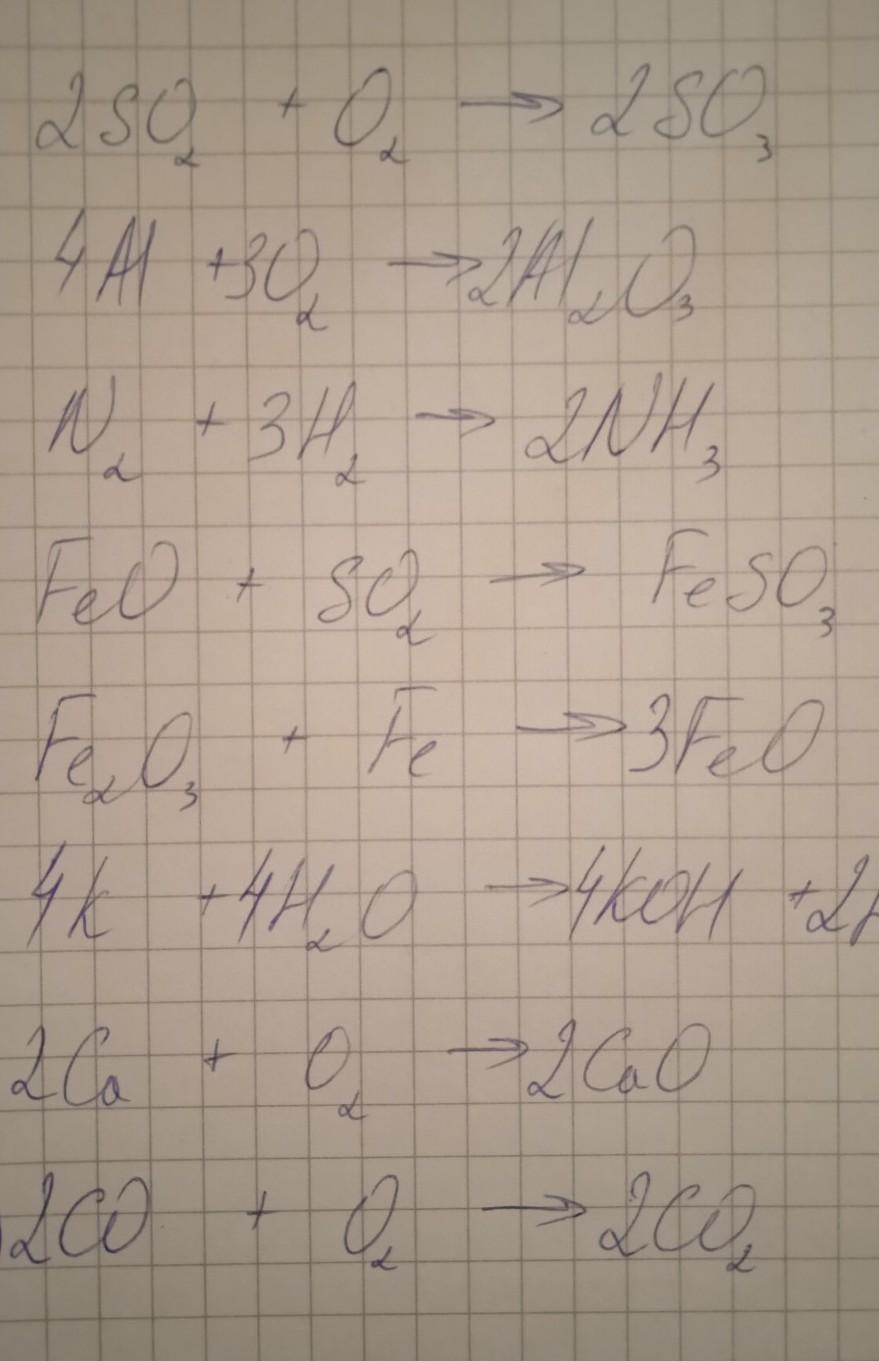 2SO₂ + O₂ → 2SO₃
4Al +3O₂ → 2Al₂O₃
N₂ + 3H₂ → 2NH₃
FeO + SO₂ → FeSO₃
Fe₂O₃ + Fe → 3FeO
4K +4H₂O → 4KOH +2
2Ca + O₂ → 2CaO
2CO + O₂ → 2CO₂